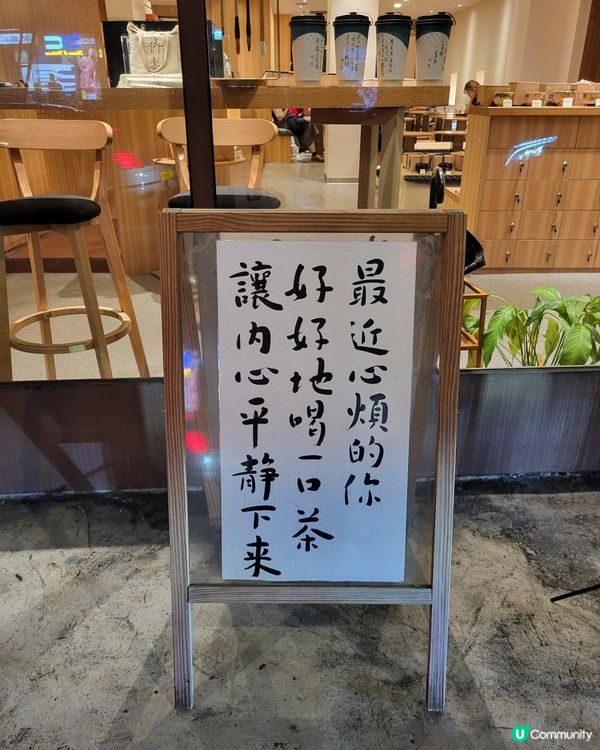 最近心煩的你
好好地喝一口茶
讓內心平靜下来
U Community